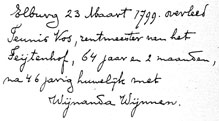 Elburg 23 Maart 1799. overleed
Teunis Vos, rentmeester van het
Feijtenhof, 64 jaar en 2 maanden,
na 46 jarig huwelijk met
Wijnanda Wijnnen.